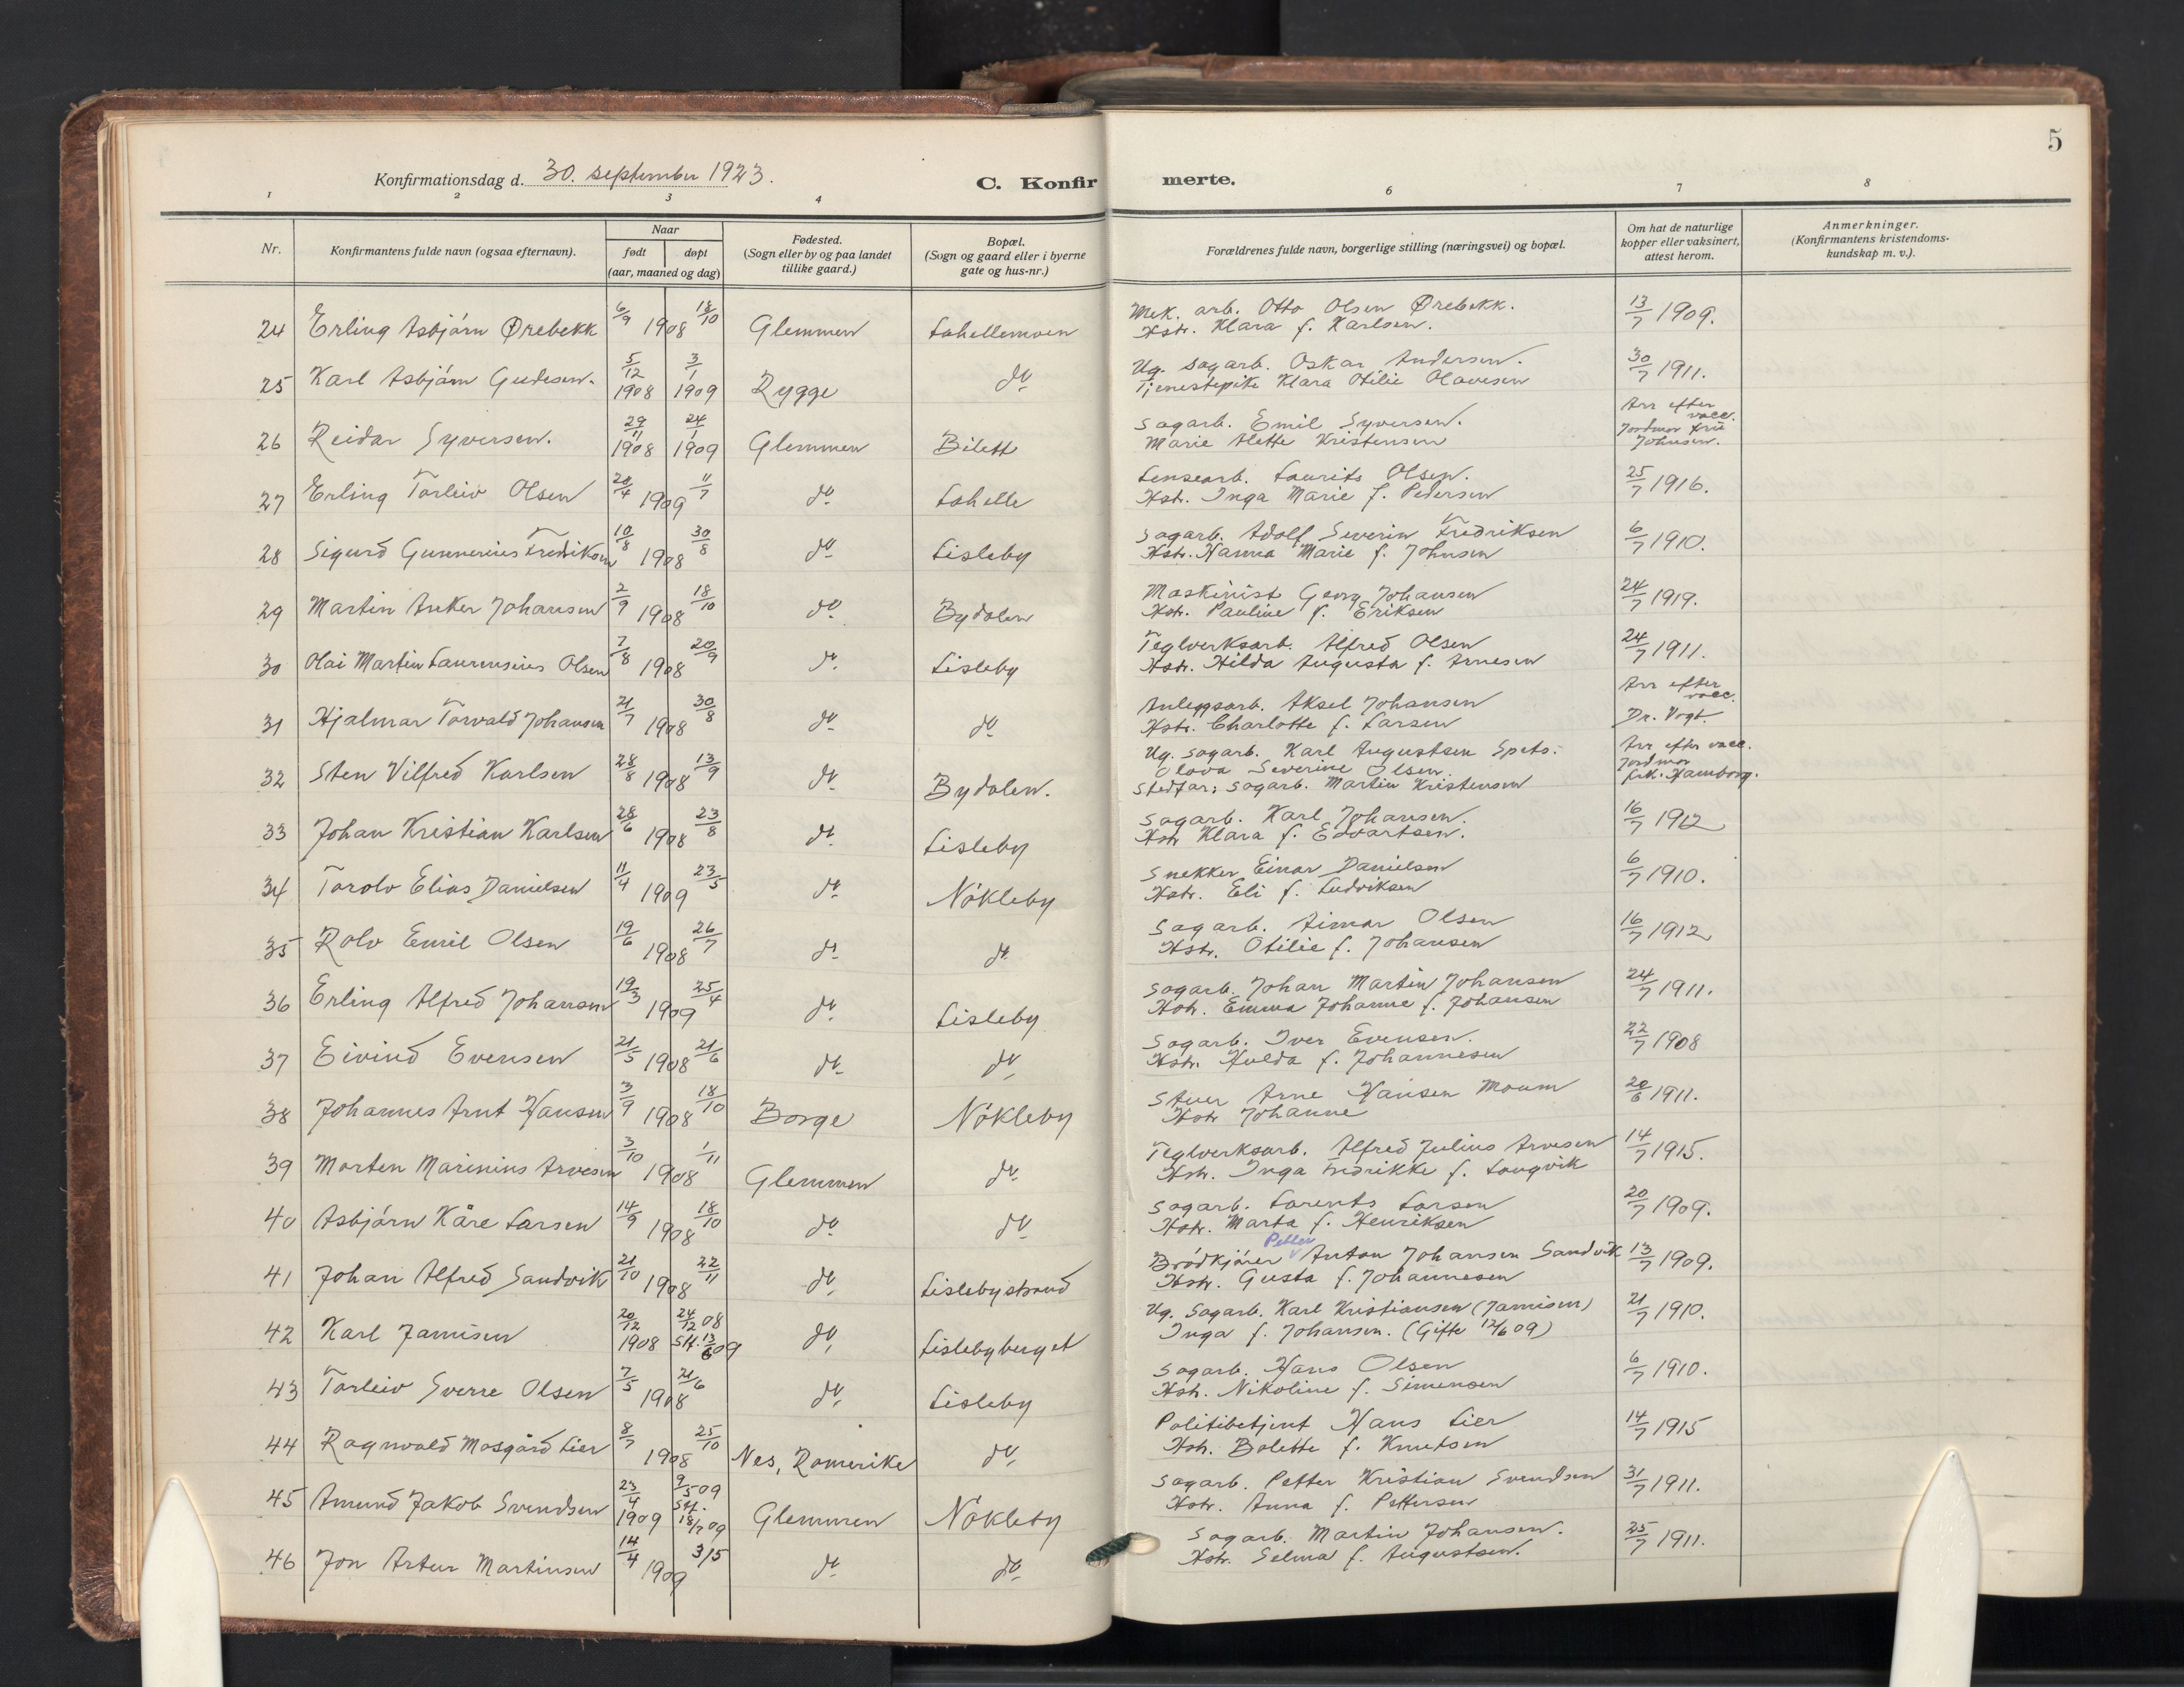 5
Konfirmationsdag d. 30. september 1923.
C. Konfirmerte.
1 2 3 4 6 7 8
Nr.
Konfirmantens fulde navn (ogsaa efternavn).
Naar
født døpt
(aar, maaned og dag)
Fødested.
(Sogn eller by og paa landet
tillike gaard.)
Bopæl.
(Sogn og gaard eller i byerne
gate og hus-nr.)
Forældrenes fulde navn, borgerlige stilling (næringsvei) og bopæl.
Om hat de naturlige
kopper eller vaksinert,
attest herom.
Anmerkninger.
(Konfirmantens kristendoms-
kundskap m. v.).
24 Erling Asbjørn Ørebekk 6/9 1908 18/10 Glemmen Lahellemoen Mek. arb. Otto Olsen Ørebekk. 13/7 1909.
Hstr. Klara f. Karlsen.
25 Karl Asbjørn Gudesen. 5/12 1908 3/1 1909 Rygge do Ug. sagarb. Oskar Andersen. 30/7 1911.
Tjenestepike Klara Otilie Olavesen
26 Reidar Syversen. 29/11 1908 24/1 1909 Glemmen Bilett Sagarb. Emil Syversen. Arr efter vacc.
Marie Alette Kristensen Jordmor fru Johnsen.
27 Erling Torleiv Olsen 20/4 1909 11/7 do Lahelle Lensearb. Laurits Olsen. 25/7 1916.
Hstr. Inga Marie f. Pedersen
28 Sigurd Gunnerius Fredriksen 10/8 1908 30/8 do Lisleby Sagarb. Adolf Severin Fredriksen 6/7 1910.
Hstr. Hanna Marie f. Johnsen
29 Martin Anker Johansen 2/9 1908 18/10 do Bydalen Maskinist Georg Johansen 24/7 1919.
Hstr. Pauline f. Eriksen
30 Olai Martin Laurensius Olsen 7/8 1908 20/9 do Lisleby Teglverksarb. Alfred Olsen 24/7 1911.
Hstr. Hilda Augusta f. Arnesen
31 Hjalmar Torvald Johansen 21/7 1908 30/8 do do Anleggsarb. Aksel Johansen Arr efter vacc.
Hstr. Charlotte f. Larsen Dr. Vogt.
32 Sten Vilfred Karlsen 28/8 1908 13/9 do Bydalen. Ug. sagarb. Karl Augustsen Spets. Arr efter vacc.
Olava Severine Olsen Jordmor
Stedfar: sagarb. Martin Kristensen frk. Hamborg.
33 Johan Kristian Karlsen 28/6 1908 23/8 do Lisleby Sagarb. Karl Johansen. 16/7 1912
Hstr Klara f. Edvartsen.
34 Torolv Elias Danielsen 11/4 1909 23/5 do Nökleby Snekker Einar Danielsen 6/7 1910.
Hstr. Eli f. Ludviksen
35 Rolv Emil Olsen 19/6 1908 26/7 do do Sagarb. Aimar Olsen 16/7 1912
Hstr. Otilie f. Johansen
36 Erling Alfred Johansen 19/3 1909 25/4 do Lisleby Sagarb. Johan Martin Johansen 24/7 1911.
Hstr. Emma Johanne f. Johansen
37 Eivind Evensen 21/5 1908 21/6 do do Sagarb. Iver Evensen. 22/7 1908
Hstr. Hulda f. Johannesen
38 Johannes Arnt Hansen 3/9 1908 18/10 Borge Nökleby Stuer Arne Hansen Moum 20/6 1911.
Hstr Johanne
39 Morten Marinius Arvesen 3/10 1908 1/11 Glemmen do Teglverksarb. Alfred Julius Arvesen 14/7 1915.
Hstr. Inga Fredrikke f. Langvik
40 Asbjørn Kåre Larsen 14/9 1908 18/10 do do Sagarb. Lorents Larsen 20/7 1909.
Hstr. Marta f. Henriksen
Petter
41 Johan Alfred Sandvik 21/10 1908 22/11 do Lislebystrand Brödkjörer Anton Johansen Sandvik 13/7 1909.
Hstr. Gusta f. Johannesen
42 Karl Jamisen 20/12 1908 24/12 08 Stf. 13/6 09 do Lislebyberget Ug. Sagarb. Karl Kristiansen (Jamisen) 21/7 1910.
Inga f. Johansen. (Gifte 12/6 09)
43 Torleiv Sverre Olsen 7/5 1908 21/6 do Lisleby Sagarb. Hans Olsen 6/7 1910.
Hstr. Nikoline f. Simensen
44 Ragnvald Mosgård Lier 8/7 1908 25/10 Nes, Romerike do Politibetjent Hans Lier 14/7 1915
Hstr. Bolette f. Knutsen
45 Amund Jakob Svendsen 23/4 1909 9/5 09 Stf. 18/7 09 Glemmen Nökleby Sagarb. Petter Kristian Svendsen 31/7 1911.
Hstr. Anna f. Pettersen
46 Jon Artur Martinsen 14/4 1909 3/5 do do Sagarb. Martin Johansen. 25/7 1911.
Hstr. Selma f. Augustsen.